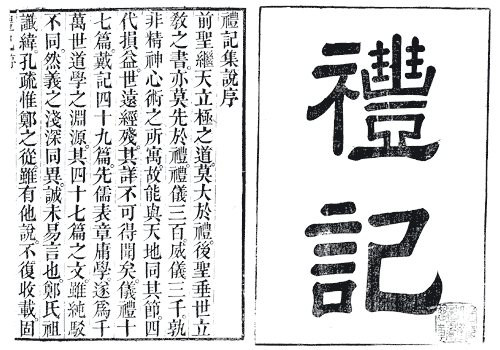 禮記
禮記集說序
前聖繼天立極之道。莫大於禮。後聖垂世立
教之書。亦莫先於禮。禮儀三百。威儀三千。孰
非精神心術之所寓。故能與天地同其節。四
代損益。世遠經殘。其詳不可得聞矣。儀禮十
七篇。戴記四十九篇。先儒表章庸學。遂爲千
萬世道學之淵源。其四十七篇之文。雖純駁
不同。然義之淺深同異。誠未易言也。鄭氏祖
讖緯。孔疏惟鄭之從。雖有他說。不復收載。固